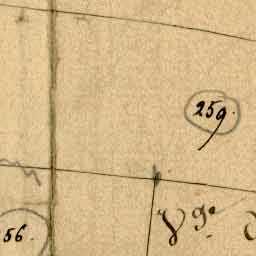 259.
56.
Vge